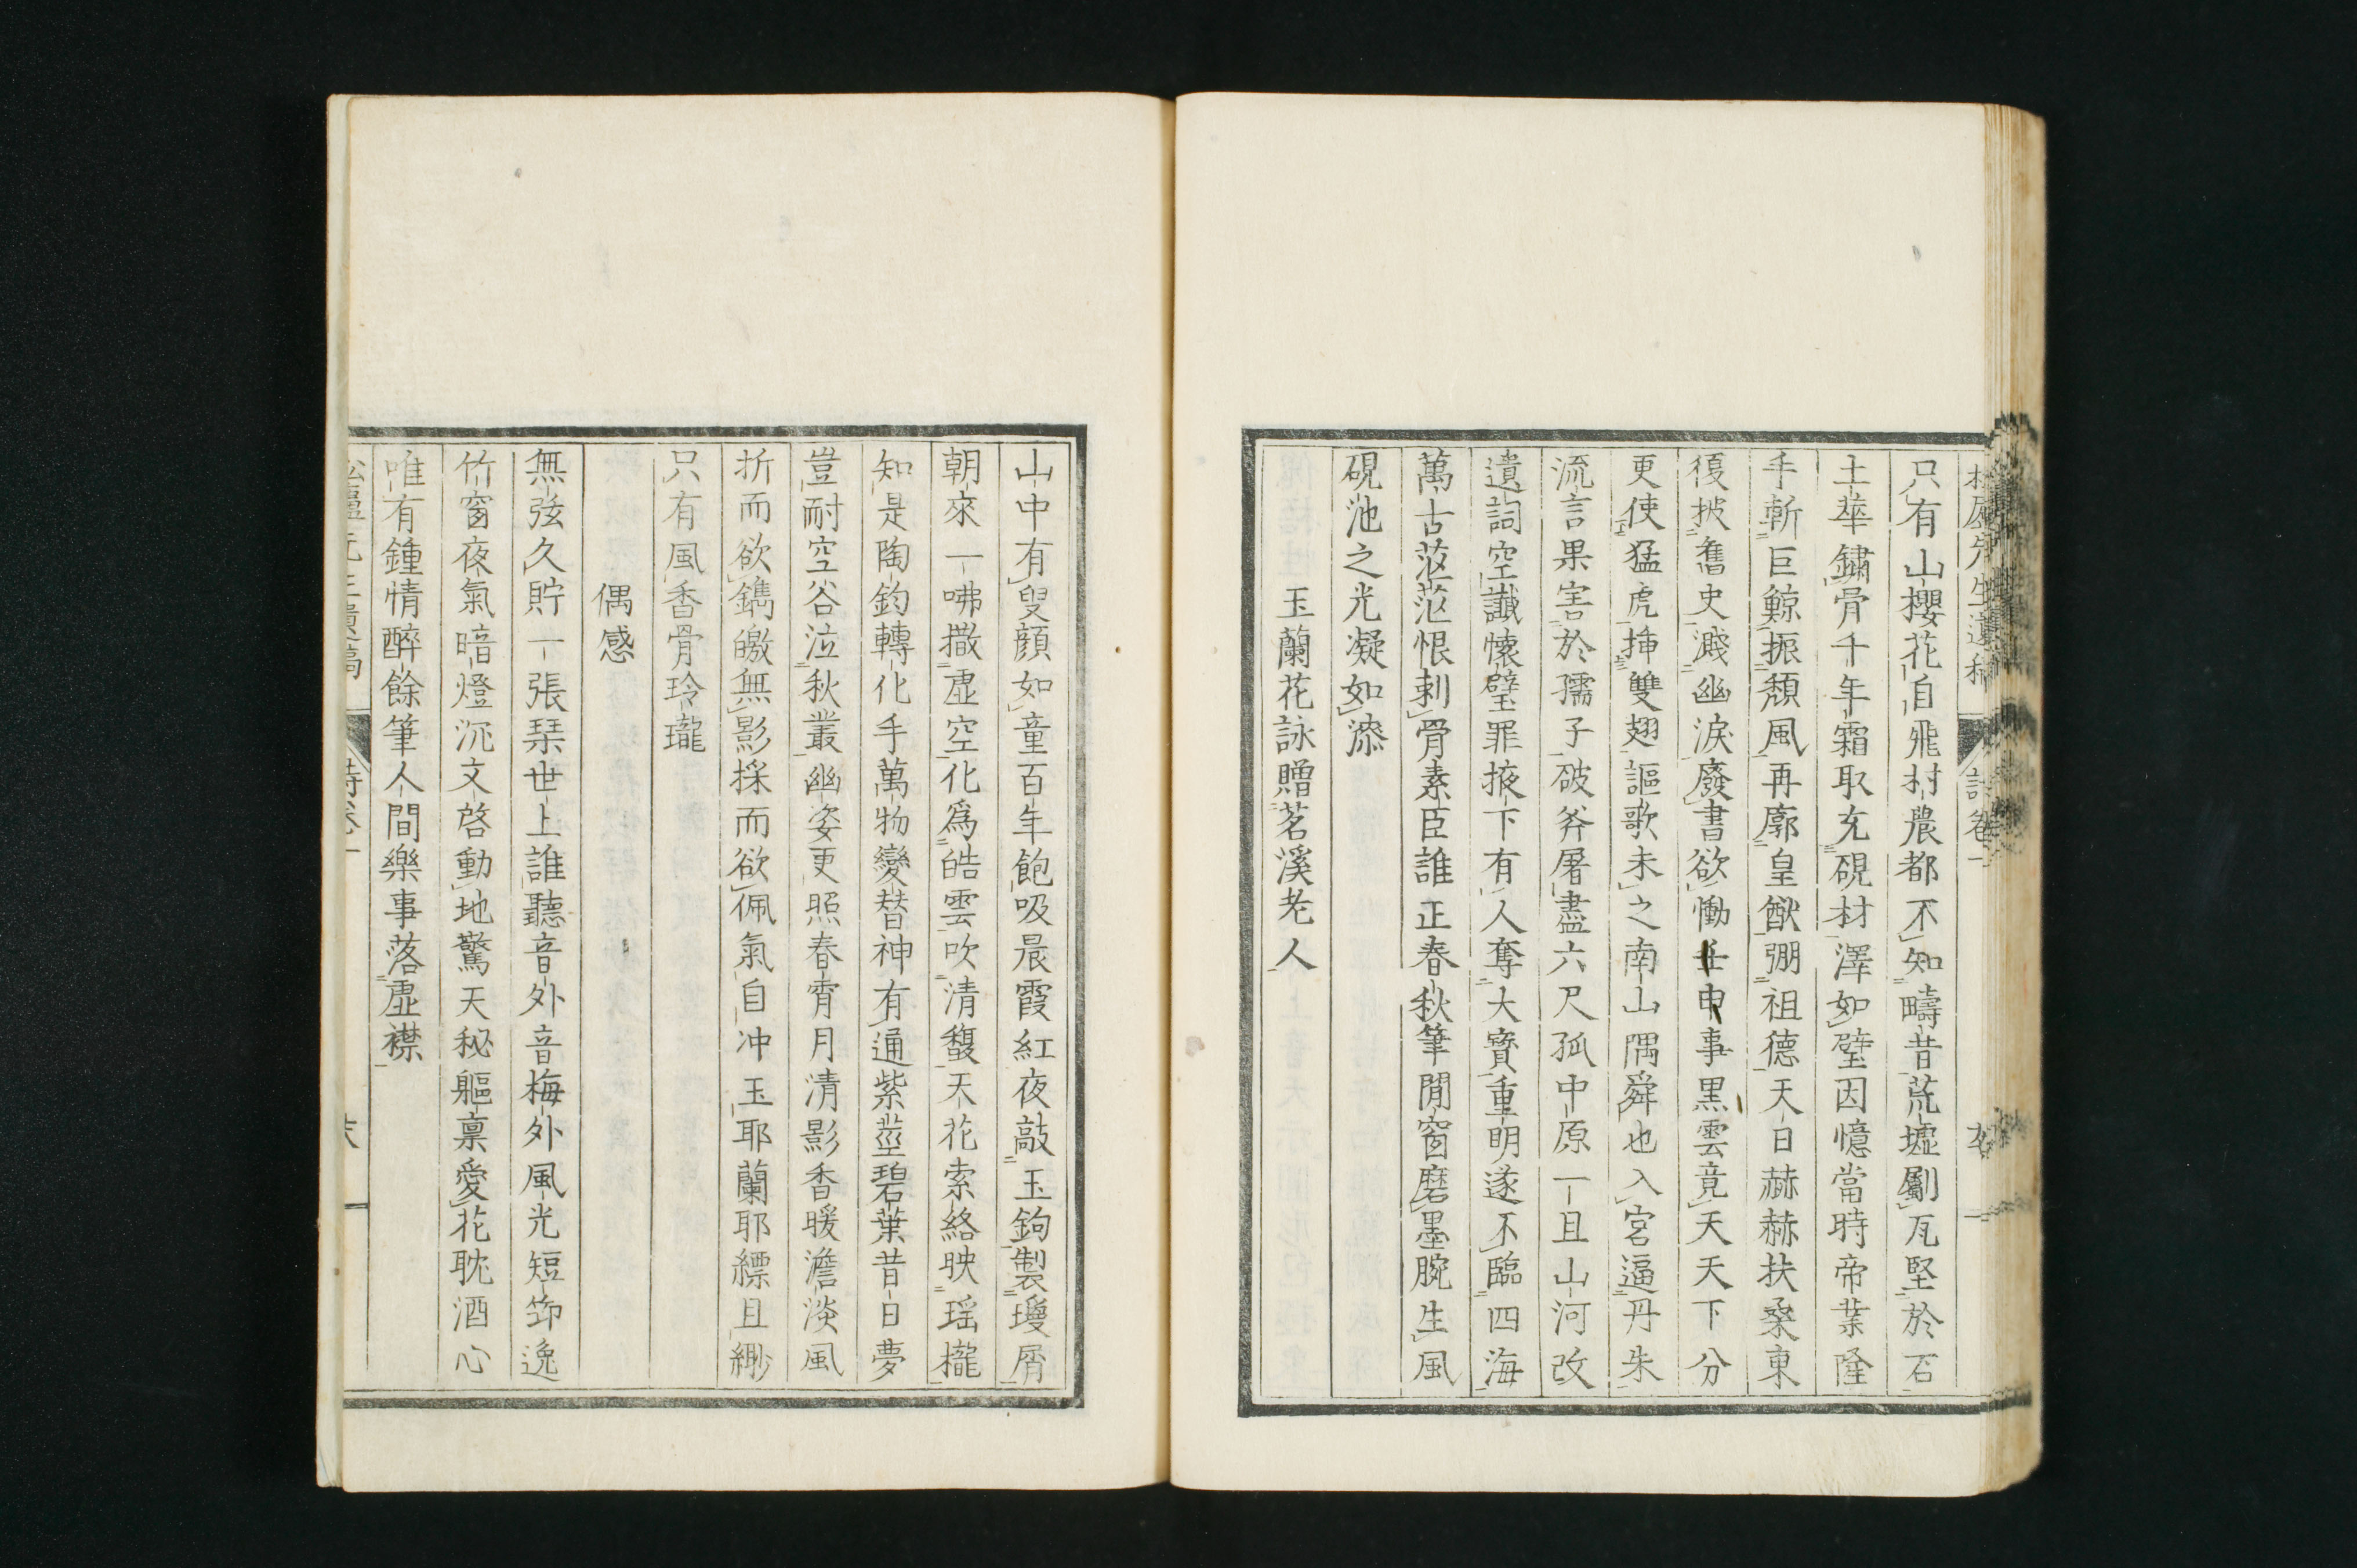 只有山櫻花自飛村農都不知疇昔荒墟劚瓦堅於石
土華鏽骨千年霜取充硯材澤如璧因憶當時帝業隆
手斬巨鯨振頽風再廓皇猷弸祖德天日赫赫扶桑東
復披舊史濺幽淚廢書欲慟壬申事黑雲竟天天下分
更使猛虎揷雙翅謳歌未之南山隅舜也入宮逼丹朱
流言果害於孺子破斧屠盡六尺孤中原一且山河改
遺詞空讖懷璧罪掖下有人奪大寶重明遂不臨四海
萬古茫茫恨刺骨素臣誰正春秋筆閒窗磨墨腕生風
硯池之光凝如漆
玉蘭花詠贈茗溪老人
山中有叟顏如童百年飽吸晨霞紅夜敲玉鉤製瓊屑
朝來一咈撒虛空化爲皓雲吹清馥天花索絡映瑤櫳
知是陶鈞轉化手萬物變替神有通紫莖碧葉昔日夢
豈耐空谷泣秋叢幽姿更照春宵月清影香暖澹淡風
折而欲鐫皦無影採而欲佩氣自冲玉耶蘭耶縹且緲
只有風香骨玲瓏
偶感
無弦久貯一張琹世上誰聽音外音梅外風光短節逸
竹窗夜氣暗燈沉文啓動地驚天秘軀稟愛花耽酒心
唯有鍾情醉餘筆人間樂事落虛襟